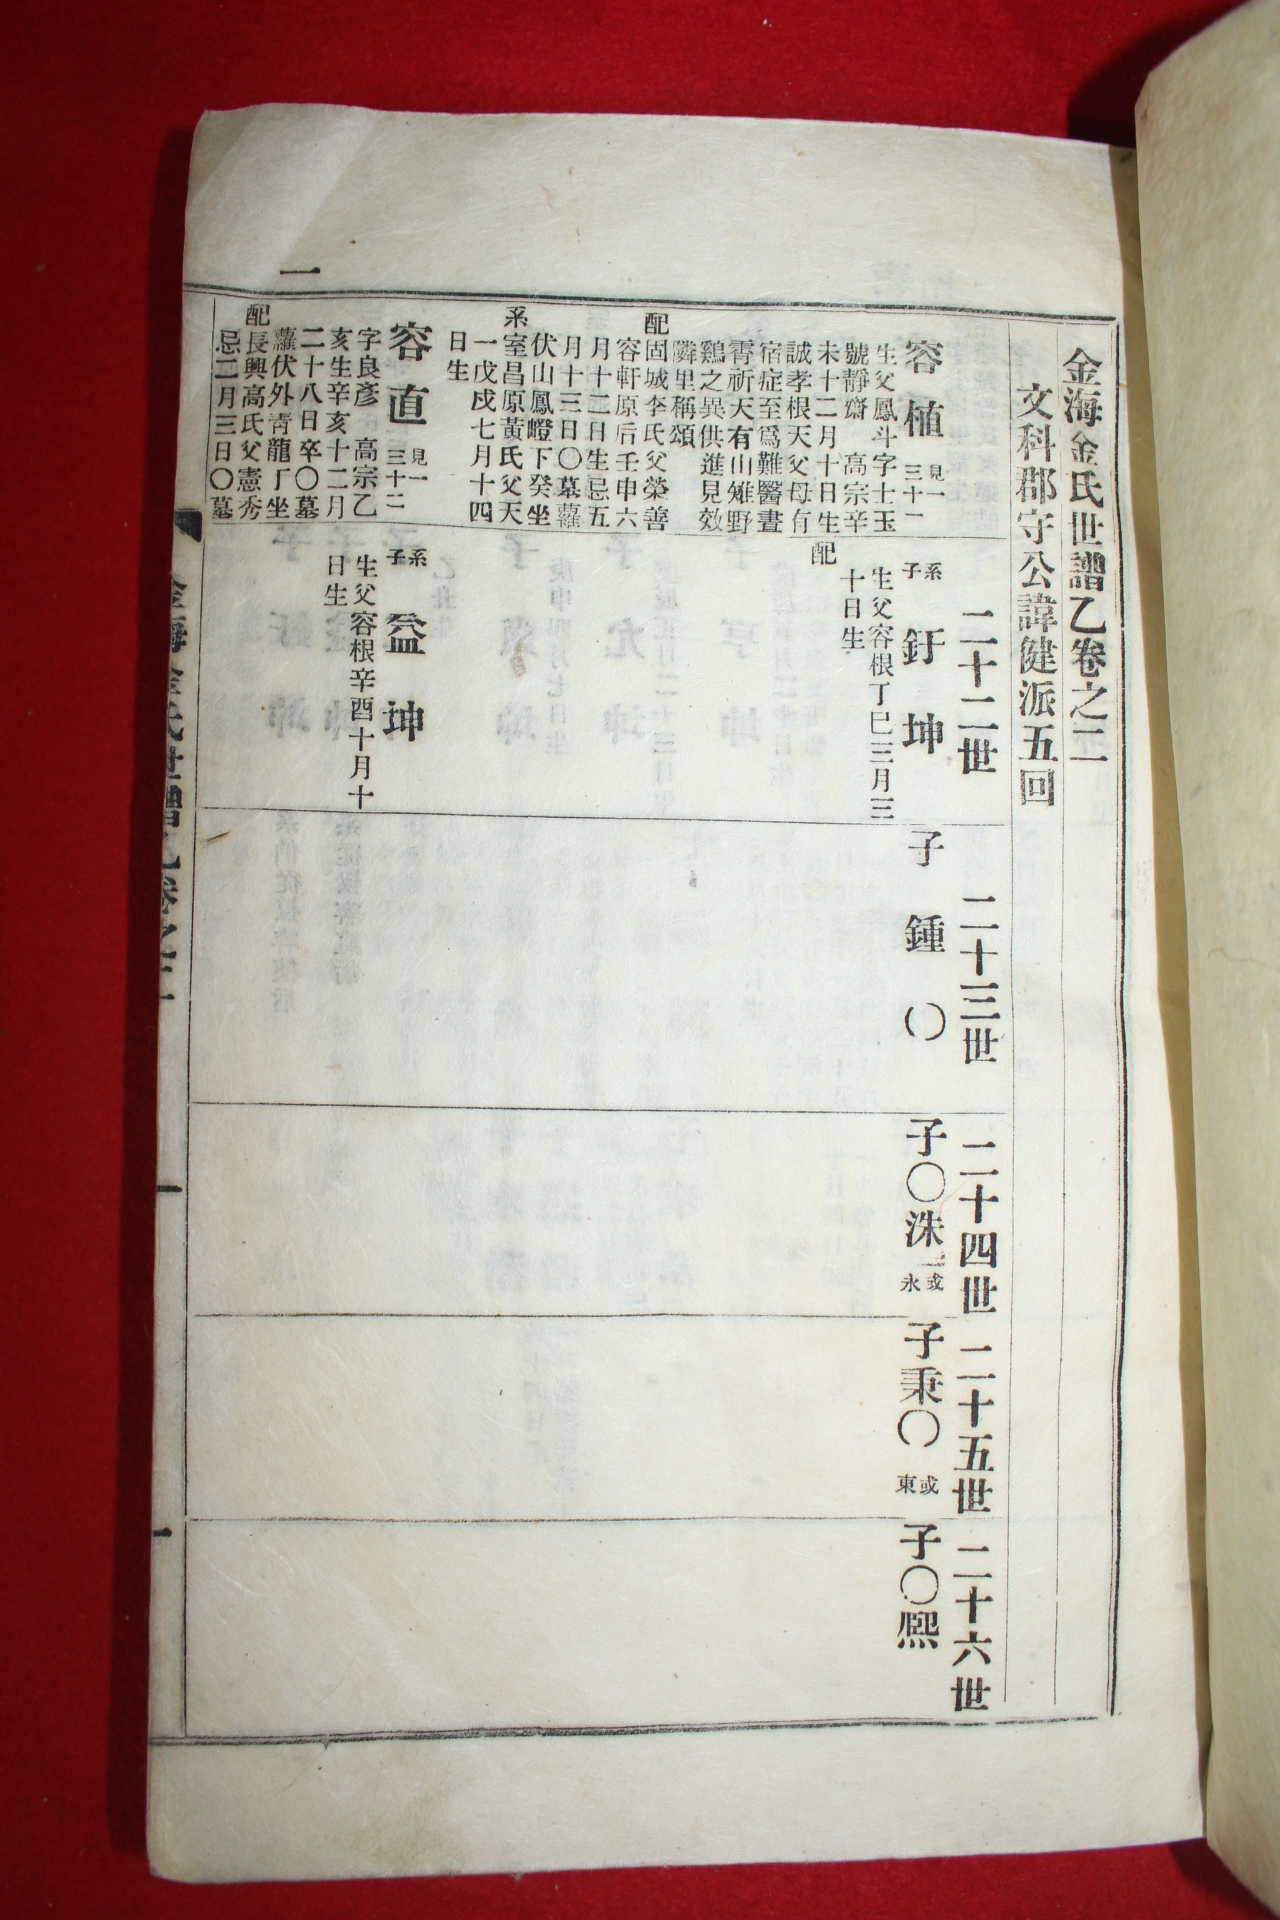 金海金氏世譜乙卷之二
文科郡守公諱健派五回
二十二世
二十三世
二十四世
二十五世
二十六世
容植 見一 三十一
生父鳳斗字士玉
號靜齋 高宗辛
未十二月十日生
誠孝根天父母有
宿症至爲難醫晝
霄祈天有山雉野
鷄之異供進見效
隣里稱頌
配固城李氏父榮善
容軒原后壬申六
月十二日生忌五
月十三日〇墓蘿
伏山鳳嶝下癸坐
系室昌原黃氏父天
一戊戌七月十四
日生
系子 釪坤
生父容根丁巳三月三
十日生
配
子 鍾〇
子〇洙 一或永
子秉〇 或東
子〇熙
容直 見一 三十二
字良彥 高宗乙
亥生辛亥十二月
二十八日卒〇墓
蘿伏外靑龍⺁坐
配長興高氏父憲秀
忌二月三日〇墓
系子 益坤
生父容根辛酉十月十
日生
一
金海金氏世譜乙卷之二
一